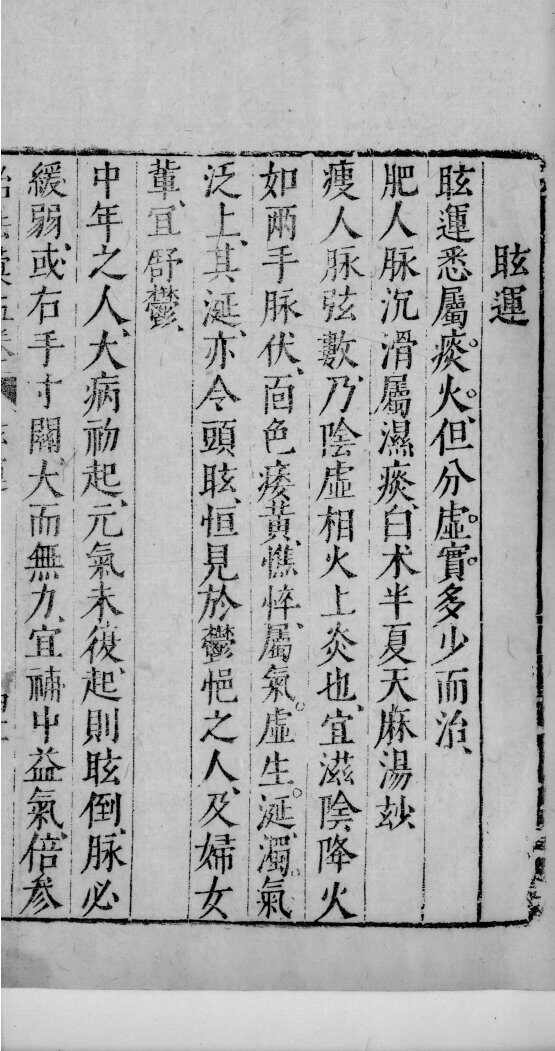 眩運
眩運悉屬痰火、但分虛實多少而治、
肥人脉沉滑屬濕痰、白术半夏天麻湯玅
瘦人脉弦數、乃陰虛相火上炎也、宜滋陰降火
如兩手脉伏、面色痿黃、憔悴、屬氣虛生涎、濁氣
泛上、其涎亦令頭眩、恒見於鬱悒之人、及婦女
輩、宜舒鬱、
中年之人、大病初起、元氣未復、起則眩倒、脉必
緩弱、或右手寸關大而無力、宜補中益氣、倍参